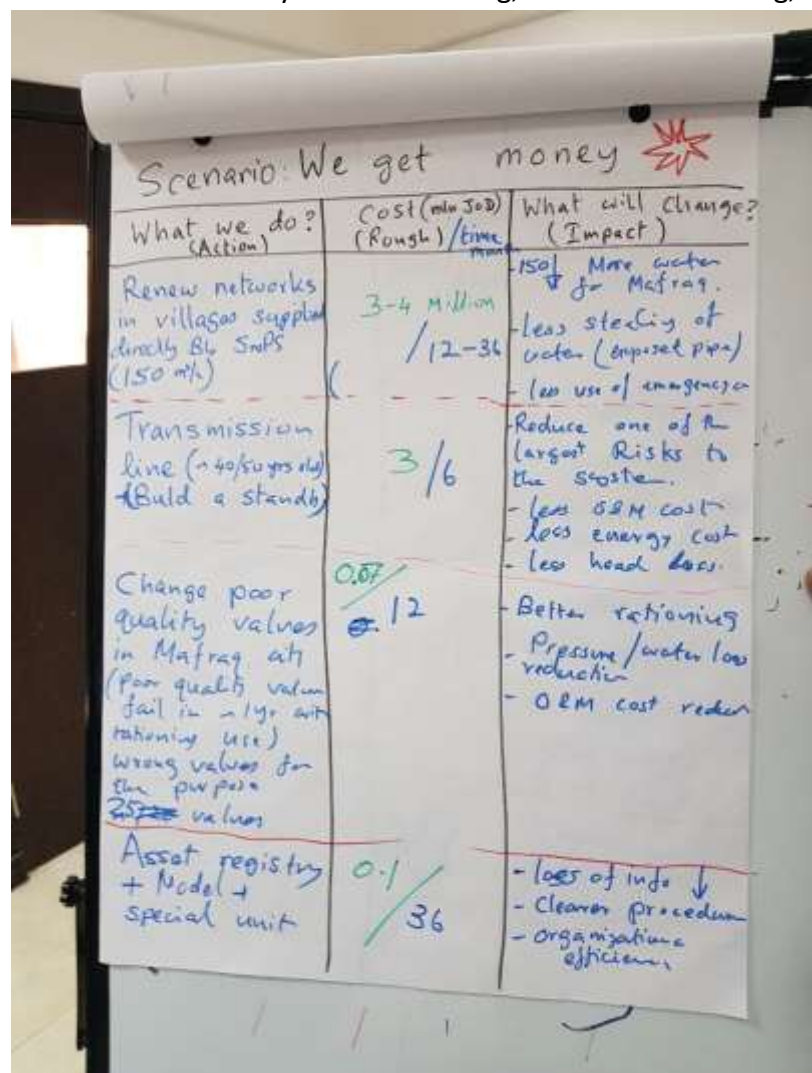 Scenario: We get money
What we do?
(Action)
Cost (mln JOD)
(Rough) /time
What will Change?
(Impact)
Renew networks
in villages supplied
directly By
(150 m³/h)
3-4 Million
/12-36
- 150 ↓ More water
for Mafraq.
- less stealing of
water (exposed pipe)
- less use of emergency
Transmission
line (~40/50 yrs old)
(Build a standby)
3/6
- Reduce one of the
largest Risks to
the
- less O&M cost
- less energy cost
- less head loss.
Change poor
quality valves
in Mafraq
(poor quality valves
fail in ~1yr with
rationing use)
wrong valves for
the purpose
valves
0.07/
12
- Better rationing
- Pressure/water loss
reduction
- O&M cost
Asset registry
+ Model +
special unit
0.1/
36
- loss of info ↓
- Clearer
- organizationa